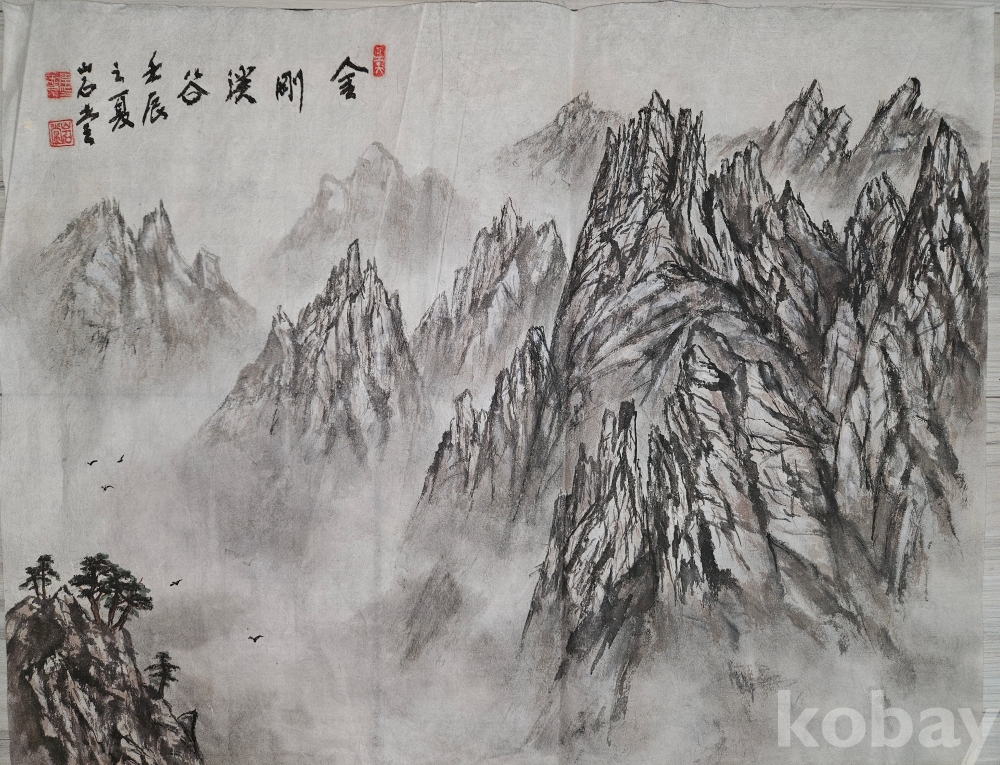 金剛溪谷
壬辰
之夏
岩堂
kobay